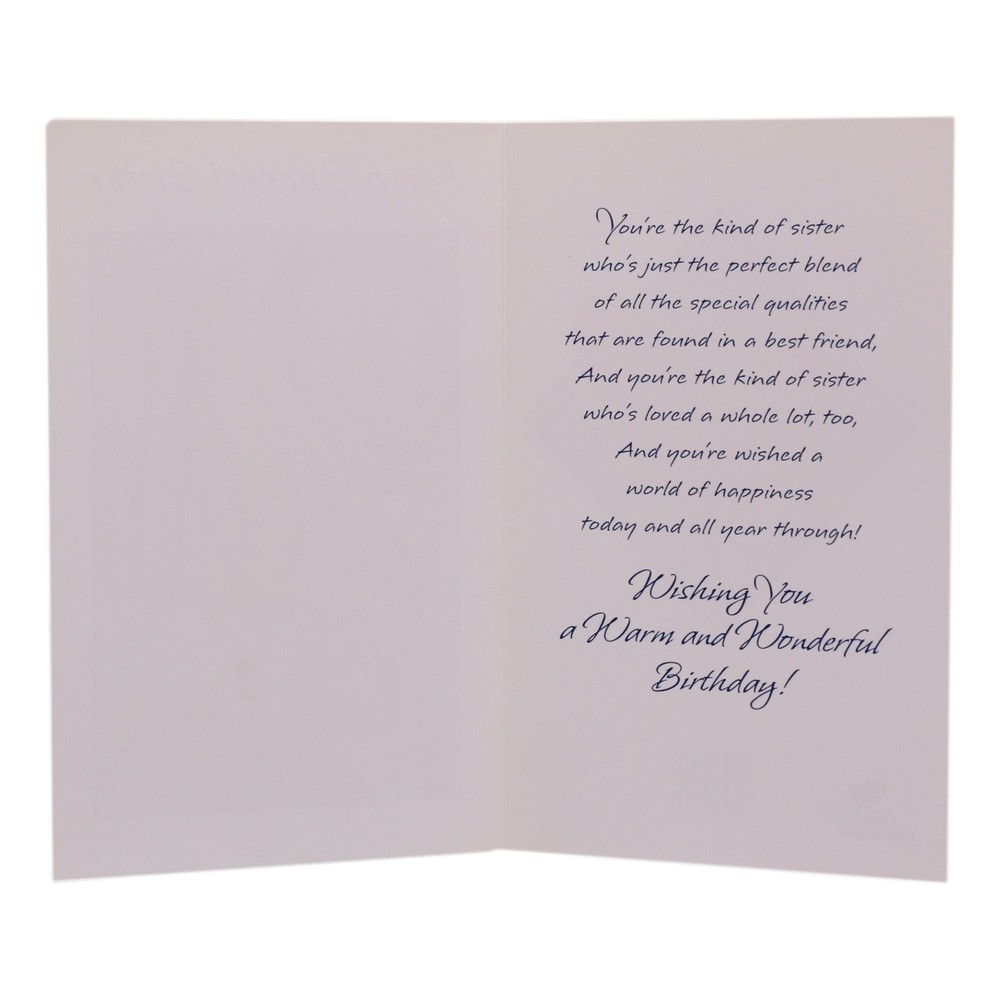 For a Special Sister
You're the kind of sister
who's just the perfect blend
of all the special qualities
that are found in a best friend,
And you're the kind of sister
who's loved a whole lot, too,
And you're wished a
world of happiness
today and all year through!
Wishing You
a Warm and Wonderful
Birthday!